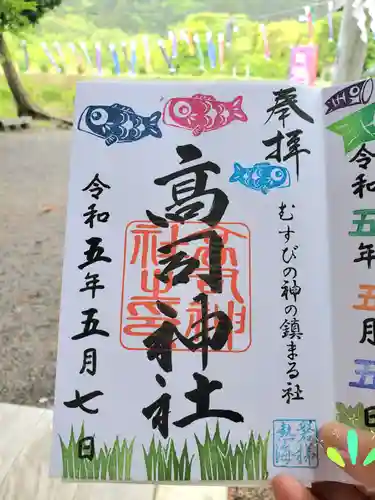 奉拝
むすびの神の鎮まる社
高司神社
令和五年五月七日
令和五年五月